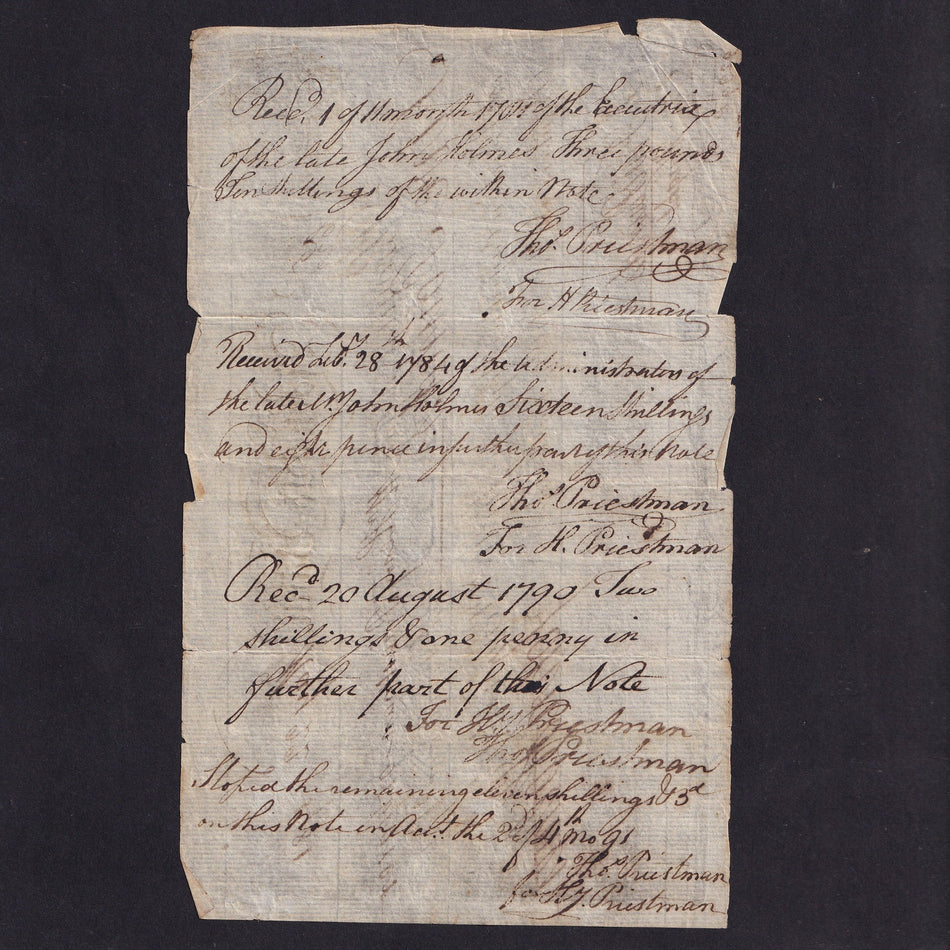 Recd. 1 of 11 month 1781 of the Executrix
of the late John Holmes Three pounds
Ten shillings of the within Note
Thos. Priestman
For H Priestman
Received Feby. 28th 1784 of the administrators of
the late Mr. John Holmes Sixteen Shillings
and eight pence in further part of this Note
Thos. Priestman
For H. Priestman
Recd. 20 August 1790 Two
shillings & one penny in
further part of this Note
For Hy Priestman
Thos Priestman
Stoped the remaining eleven shillings & 3d
on this Note in Acct. the 2d of 4th mo 91
Thos. Priestman
for Hy. Priestman